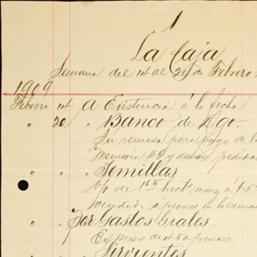 1
La Caja
Semana del 14 al 20 de Febrero
1909
Febrero 14 A Existencia á la fecha
" 20 " Banco de Dgo.
Su remesa para pago de la
Memoria #7 y demás pedidos
" " " Semillas
de 1 hect. maíz a
" " Por Gastos Grales.
Expreso de
" " " Sirvientes